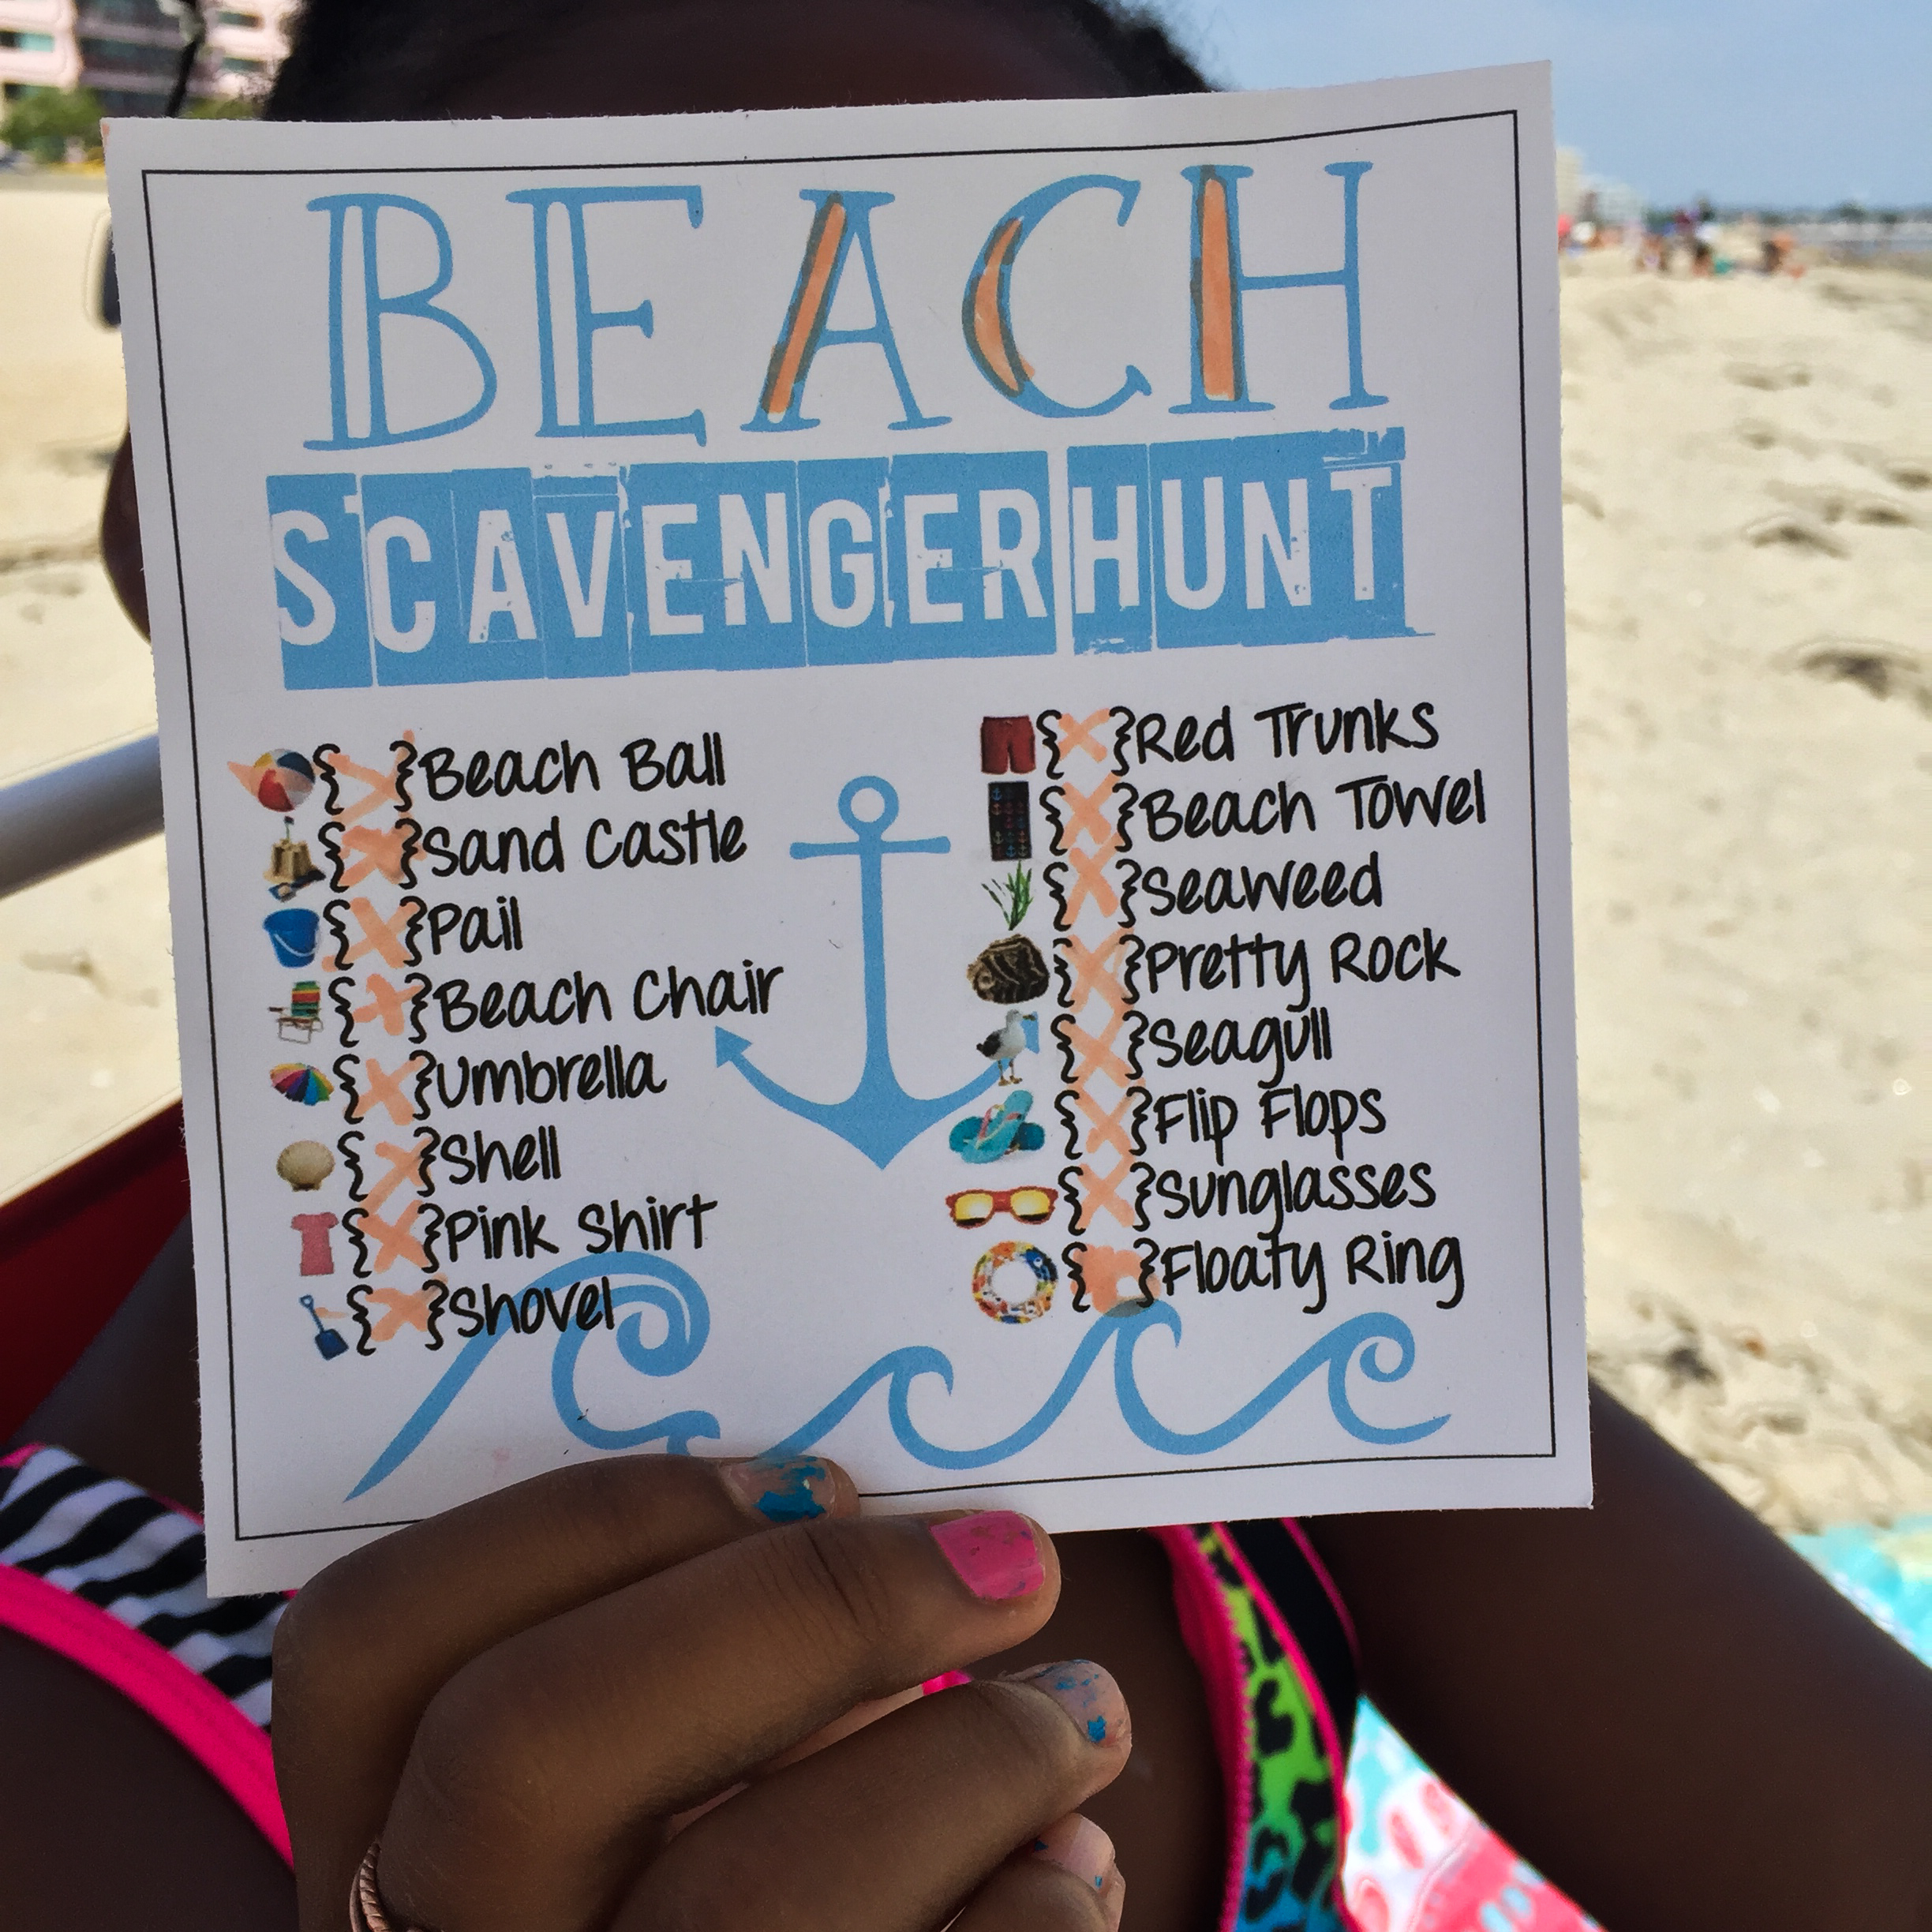 BEACH
SCAVENGER HUNT
Beach Ball
Sand Castle
Pail
Beach Chair
Umbrella
Shell
Pink Shirt
Shovel
Red Trunks
Beach Towel
Seaweed
Pretty Rock
Seagull
Flip Flops
Sunglasses
Floaty Ring